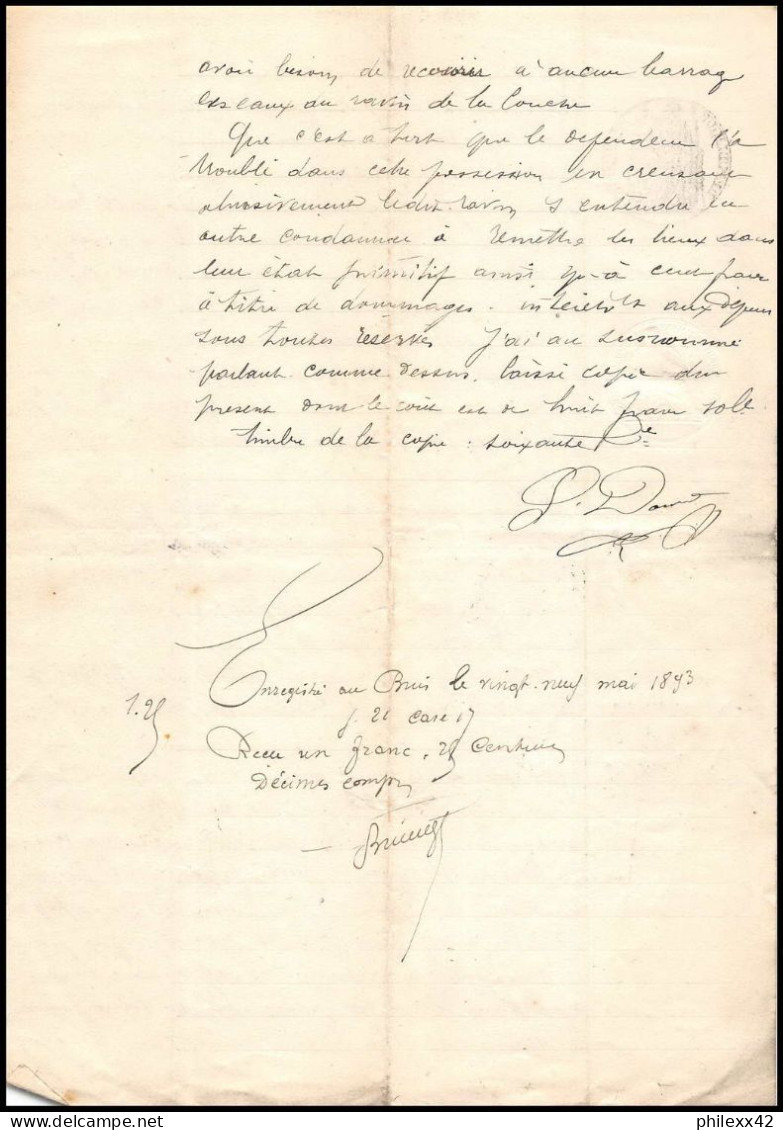 avoir besoin de recourir à aucun barrage
les eaux du ravin de la Couche
Que c'est à tort que le defendeur l'a
troublé dans cette possession en creusant
abusivement ledit ravin S'entendre en
outre condamner à remettre les lieux dans
leur état primitif ainsi qu'à cent francs
à titre de dommages-intérêts aux Dépens
sous toutes réserves J'ai au susnommé
parlant comme dessus, laissé copie du
present dont le coût est de huit francs
timbre de la copie : soixante
Enregistré au Buis le vingt-neuf mai 1893
f. 21 case 17
1.25
Reçu un franc, 25 Centimes
Décimes compris
philexx42